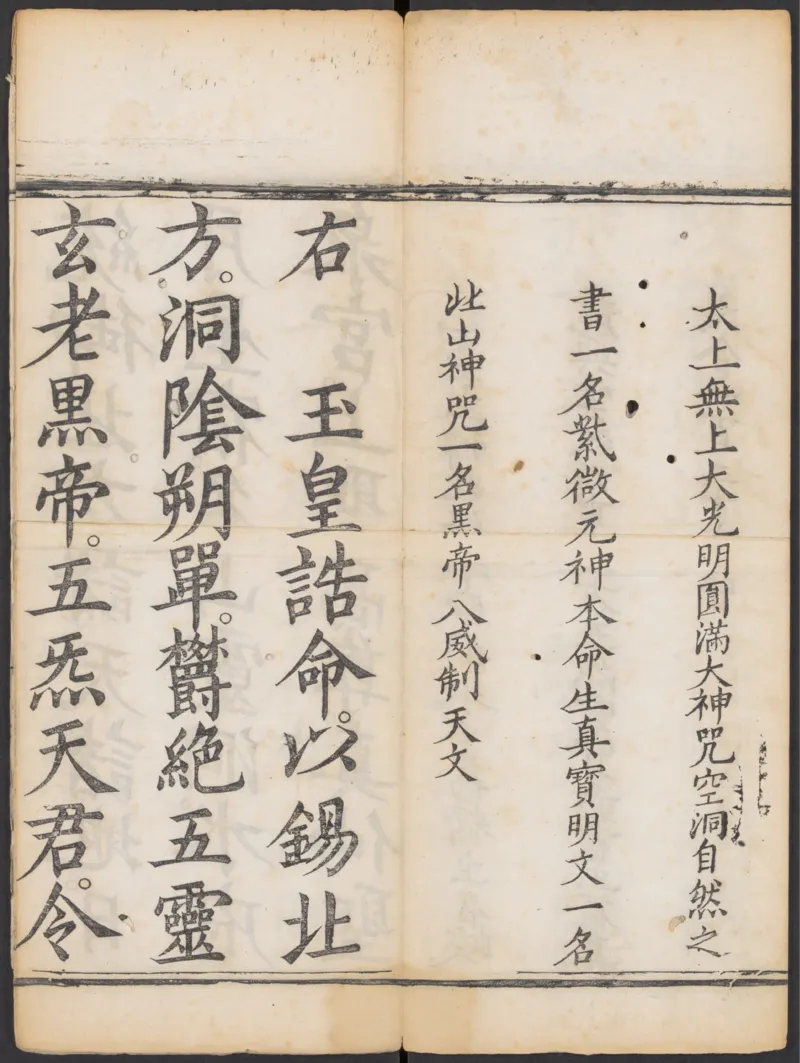 太上無上大光明圓滿大神咒空洞自然之
書一名紫微元神本命生真寶明文一名
北山神咒一名黑帝八威制天文
右　玉皇誥命。以錫北
方。洞陰朔單。欝絶五靈
玄老黒帝。五炁天君。令